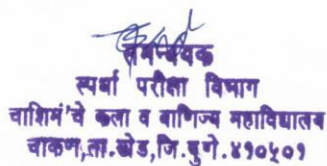 समन्वयक
स्पर्धा परीक्षा विभाग
वाशिमं'चे कला व वाणिज्य महाविद्यालय
चाकण,ता.खेड,जि.पुणे.४१०५०१